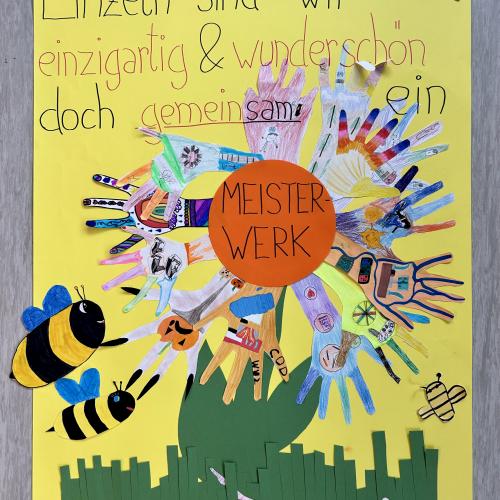 Einzeln sind wir
einzigartig & wunderschön
doch gemeinsam ein
MEISTER-
WERK